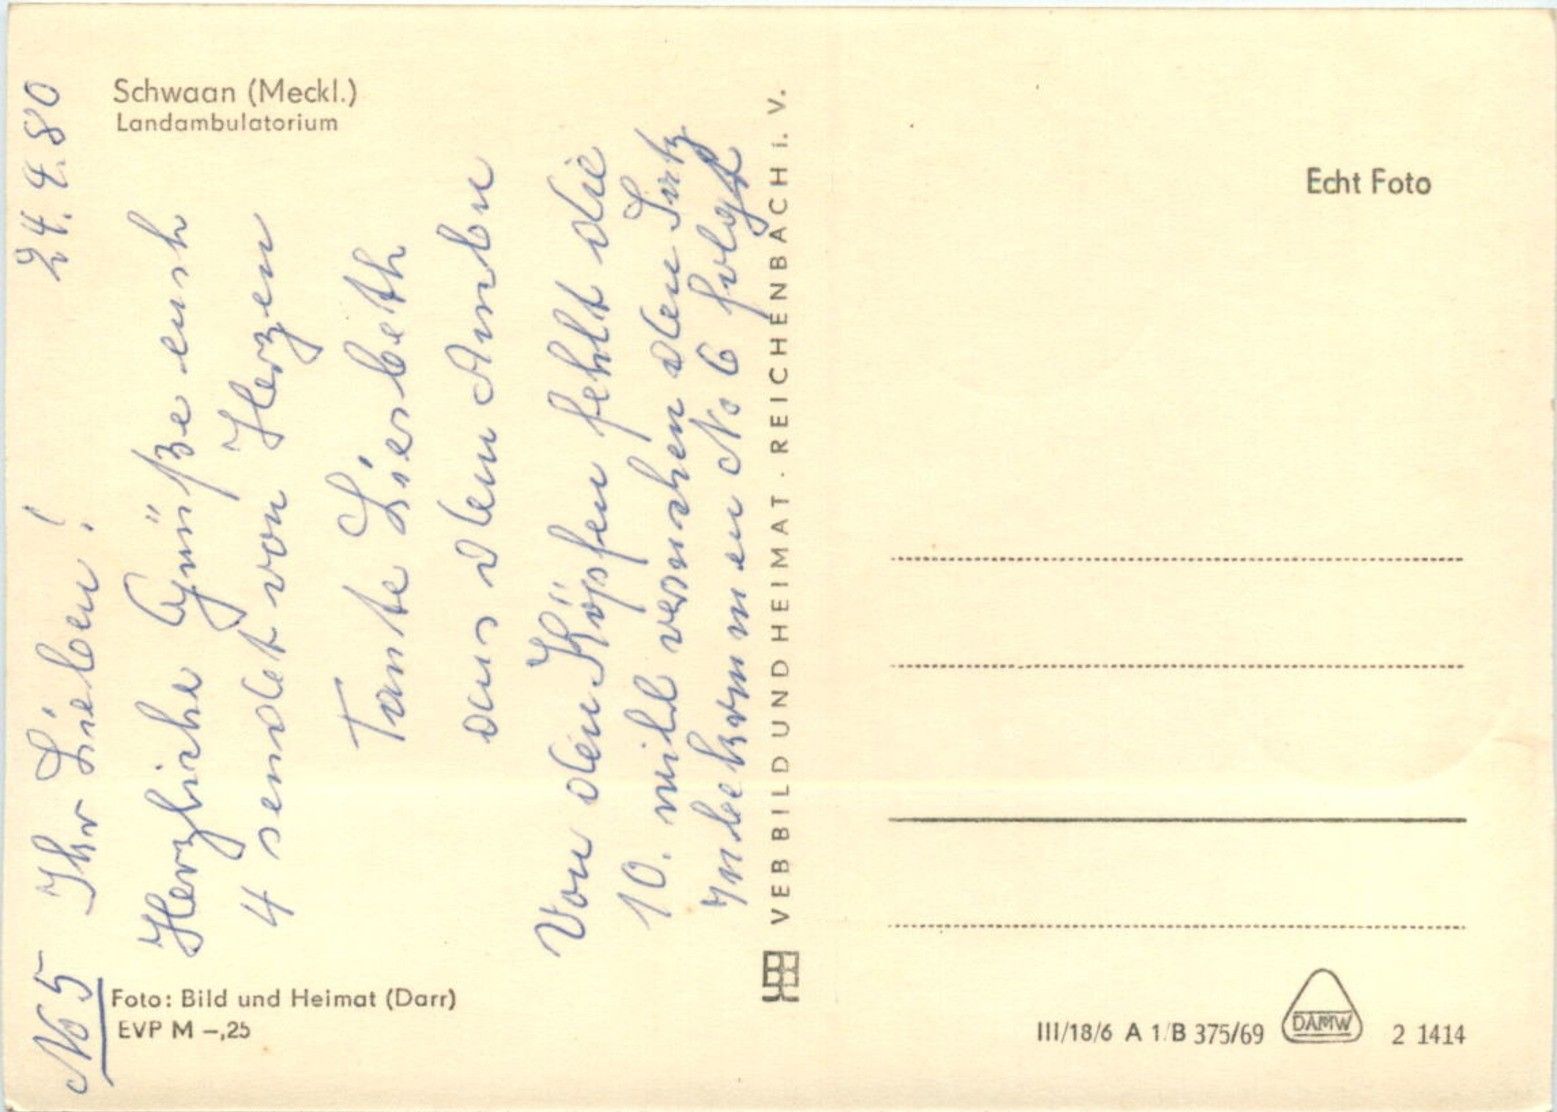 Schwaan (Meckl.)
Landambulatorium
No 5 Ihr Lieben! 24.4.80
Herzliche Grüße euch
4 sendet von Herzen
Tante Liesbeth
aus dem
Von den Köpfen fehlt die
10. will versuchen den Satz
zu bekommen No 6 folgt
Foto: Bild und Heimat (Darr)
EVP M –,25
VEB BILD UND HEIMAT · REICHENBACH i. V.
Echt Foto
III/18/6 A 1/B 375/69
DAMW
2 1414